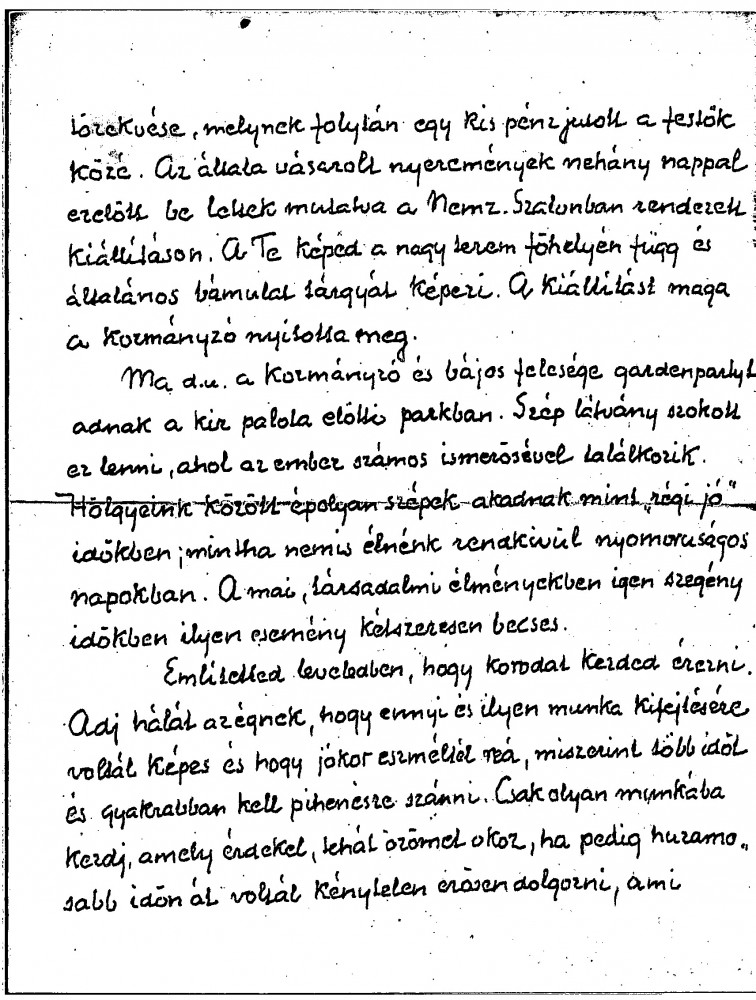 törekvése, melynek folytán egy kis pénz jutott a festők
közé. Az általa vásárolt nyeremények nehány nappal
ezelőtt be lettek mutatva a Nemz. Szalonban rendezett
kiállításon. A Te képed a nagy terem főhelyén függ és
általános bámulat tárgyát képezi. A kiállítást maga
a Kormányzó nyitotta meg.
Ma d.u. a Kormányzó és bájos felesége gardenpartyt
adnak a kir palota előtti parkban. Szép látvány szokott
ez lenni, ahol az ember számos ismerősével találkozik.
Hölgyeink között épolyan szépek akadnak mint „régi jó"
időkben; mintha nemis élnénk rendkivül nyomoruságos
napokban. A mai, társadalmi élményekben igen szegény
időkben ilyen esemény kétszeresen becses.
Emlitetted leveledben, hogy korodat kezded érezni.
Adj hálát azégnek, hogy ennyi és ilyen munka kifejtésére
voltál képes és hogy jókor eszméltél reá, miszerint több időt
és gyakrabban kell pihenésre szánni. Csak olyan munkába
kezdj, amely érdekel, tehát örömet okoz, ha pedig huzamo„
sabb időn át voltál kénytelen erősen dolgozni, ami